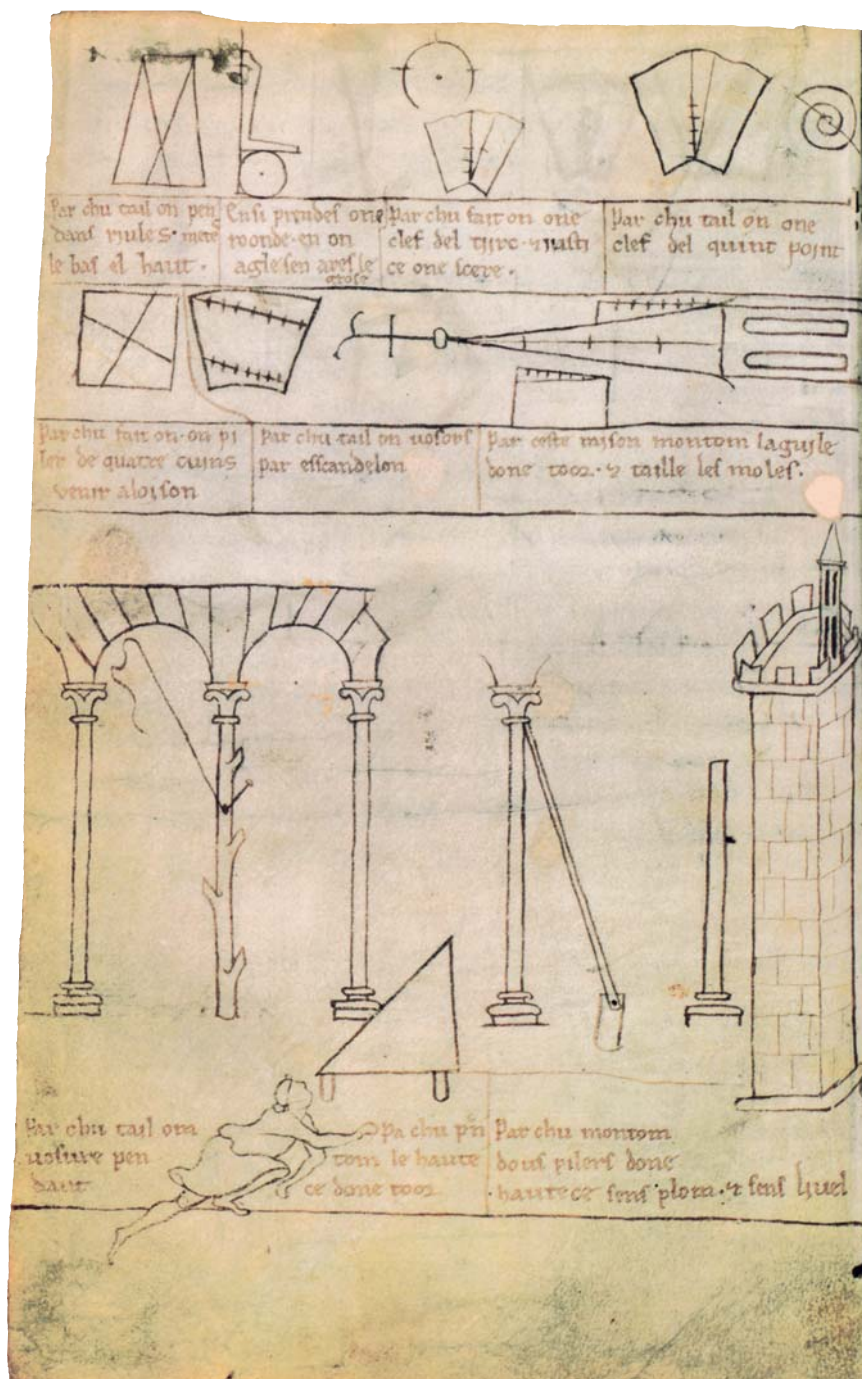 Par chu tail on pen
dans riules · metes
le bas el haut ·
Ensi prendes one
roonde · en on
agle sen ares le
grose
Par chu fait on one
clef del tirc · ⁊ iusti
ce one scere ·
Par chu tail on one
clef del quint point
Par chu fait on · on pi
ler de quatre cuins
venir a loison
Par chu tail on vosors
par esscandelon
Par ceste raison montom laguile
done toor · ⁊ taille les moles ·
Par chu tail om
vosure pen
dant
Pa chu prn
tom le haute
ce done toor
Par chu montom
dous pilers done
hautece sens plom · ⁊ sens liuel